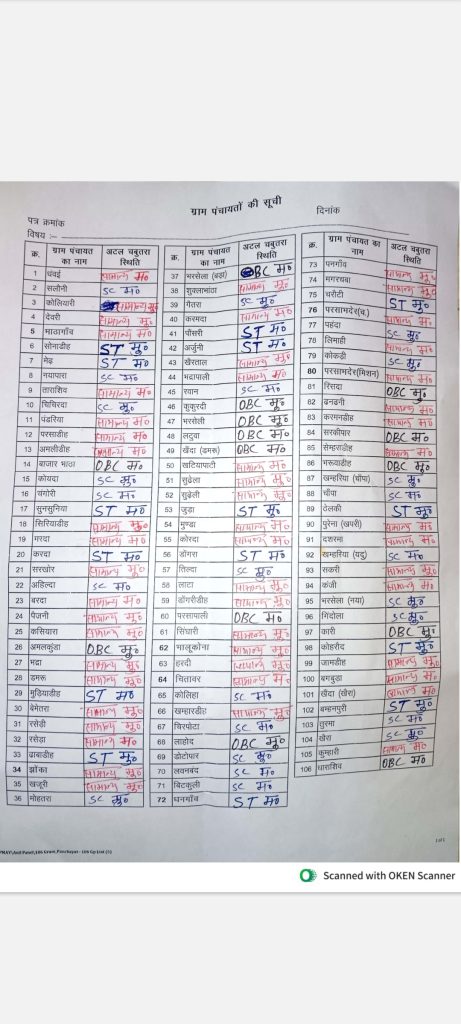 ग्राम पंचायतों की सूची
पत्र क्रमांक
दिनांक
विषय :–
क्र. ग्राम पंचायत का नाम अटल चबुतरा स्थिति
1 धंवई सामान्य म०
2 सलौनी SC म०
3 कोलियारी सामान्य मु०
4 देवरी सामान्य मु०
5 भाठागाँव सामान्य म०
6 सोनाडीह ST मु०
7 मेढ़ ST म०
8 नयापारा SC म०
9 ताराशिव सामान्य म०
10 चिचिरदा SC मु०
11 पंडरिया सामान्य म०
12 परसाडीह सामान्य म०
13 अमलीडीह सामान्य म०
14 बाजार भाठा OBC म०
15 कोयदा SC मु०
16 चंगोरी SC म०
17 सुनसुनिया ST म०
18 सिरियाडीह सामान्य मु०
19 मरदा सामान्य म०
20 करदा ST म०
21 सरखोर सामान्य मु०
22 अहिल्दा SC म०
23 बरदा सामान्य म०
24 पैजनी सामान्य म०
25 कसियारा सामान्य मु०
26 अमलकुंडा OBC मु०
27 भद्रा सामान्य मु०
28 डमरू सामान्य मु०
29 मुडियाडीह ST म०
30 बेमेतरा सामान्य मु०
31 रसेड़ी सामान्य मु०
32 रसेड़ा सामान्य म०
33 ढाबाडीह ST मु०
34 झोंका सामान्य मु०
35 खजूरी सामान्य मु०
36 मोहतरा SC मु०
क्र. ग्राम पंचायत का नाम अटल चबुतरा स्थिति
37 भरसेला (बड़ा) OBC म०
38 शुक्लाभांठा सामान्य मु०
39 गैतरा SC मु०
40 करमदा सामान्य म०
41 पौंसरी ST म०
42 अर्जुनी ST म०
43 खैरताल सामान्य मु०
44 भद्रापाली सामान्य म०
45 रवान SC मु०
46 कुकुरदी OBC मु०
47 भरसेली OBC मु०
48 लटुवा OBC म०
49 खैंदा (डमरू) OBC म०
50 खटियापाटी सामान्य मु०
51 सुढेला सामान्य मु०
52 सुढेली सामान्य मु०
53 जुड़ा ST मु०
54 मुण्डा सामान्य म०
55 कोरदा सामान्य म०
56 डोंगरा ST म०
57 तिल्दा SC मु०
58 लाटा सामान्य मु०
59 डोंगरीडीह सामान्य म०
60 परसापाली OBC म०
61 सिंघारी सामान्य मु०
62 भालूकोना सामान्य म०
63 हरदी सामान्य मु०
64 चितावर सामान्य म०
65 कोलिहा SC म०
66 खम्हारडीह सामान्य मु०
67 चिरपोटा SC म०
68 लाहोद OBC मु०
69 डोटोपार SC मु०
70 लवनबंद SC म०
71 बिटकुली SC म०
72 धनगाँव ST म०
क्र. ग्राम पंचायत का नाम अटल चबुतरा स्थिति
73 पनगाँव सामान्य मु०
74 मगरचबा सामान्य मु०
75 चरोटी सामान्य मु०
76 परसाभदेर(प.) ST मु०
77 पहंदा सामान्य मु०
78 लिमाही SC मु०
79 कोकड़ी SC मु०
80 परसाभदेर(मिशन) सामान्य म०
81 रिसदा OBC मु०
82 ढनढनी सामान्य मु०
83 करमनडीह सामान्य म०
84 सरकीपार OBC म०
85 सेम्हराडीह सामान्य म०
86 भरूवाडीह OBC म०
87 खम्हरिया (चाँपा) SC मु०
88 चाँपा SC मु०
89 ठेलकी ST मु०
90 पुरेना (खपरी) सामान्य म०
91 दशरमा सामान्य मु०
92 खम्हरिया (यदु) SC म०
93 सकरी सामान्य म०
94 कंजी सामान्य मु०
95 भरसेला (नया) SC मु०
96 भिदोला SC मु०
97 कारी OBC मु०
98 कोहरौद ST मु०
99 जामडीह सामान्य मु०
100 बगबुड़ा सामान्य म०
101 खैंदा (खैरा) सामान्य मु०
102 बम्हनपुरी ST मु०
103 तुरमा SC म०
104 खैरा SC मु०
105 कुम्हारी सामान्य म०
106 धाराशिव OBC म०
1 of 1
Scanned with OKEN Scanner